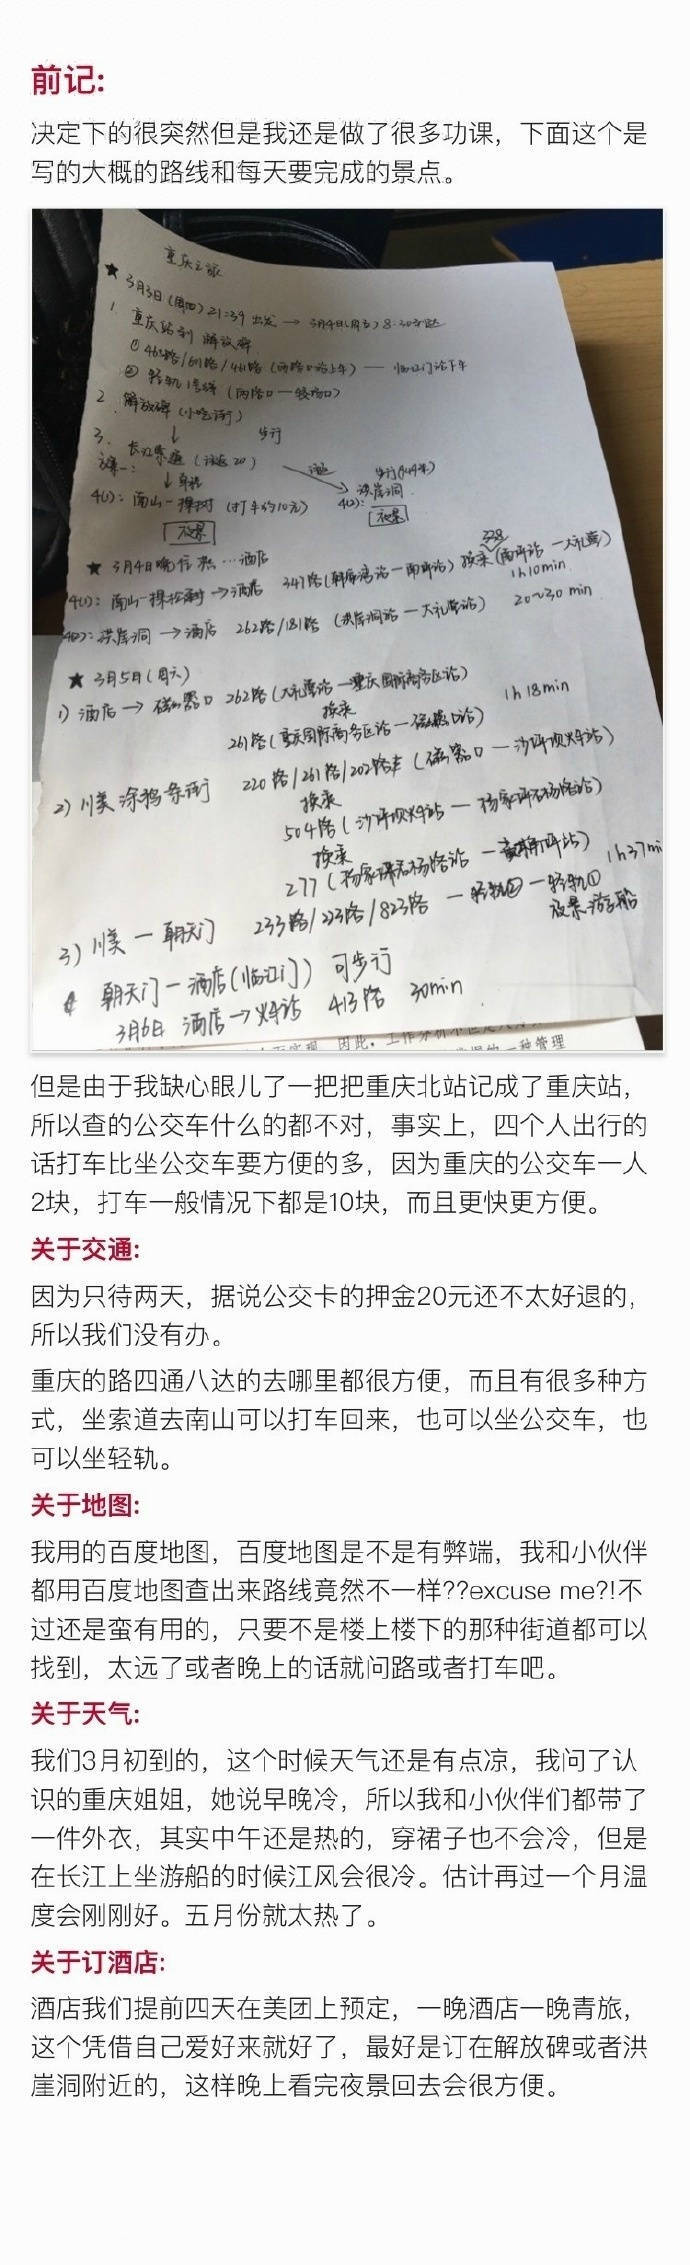 前记:
决定下的很突然但是我还是做了很多功课，下面这个是
写的大概的路线和每天要完成的景点。
重庆之旅
★ 3月3日(周四) 21:39 出发 → 3月4日(周五) 8:30到达
1. 重庆站到 解放碑
① 462路/601路/461路 (两路口站上车) — 临江门站下车
② 轻轨1号线 (两路口—较场口)
2. 解放碑 (小吃街)
步行
3. 长江索道 (往返20)
方案一: ↓单程 往返 步行(449米)
4(1): 南山一棵树 (打车约10元) 4(2): 洪崖洞
夜景 夜景
★ 3月4日晚住宿…酒店
338
4(1): 南山一棵树 → 酒店 347路 — 南坪站) 换乘 (南坪站 — 大礼堂)
1h10min
4(2): 洪崖洞 → 酒店 262路/181路 (洪崖洞站 — 大礼堂站) 20~30 min
★ 3月5日(周六)
1) 酒店 → 磁器口 262路 (大礼堂站 — 重庆国际商务区站)
换乘 1h18min
261路 (重庆国际商务区站 — 磁器口站)
2) 川美 涂鸦条街 220路/261路/202路车 (磁器口 — 沙坪坝火车站)
换乘
504路 (沙坪坝火车站 — 杨家坪石杨路站)
换乘
277 (杨家坪石杨路站 — 黄桷坪站) 1h37mi
3) 川美 — 朝天门 233路/223路/823路 — 轻轨② — 轻轨①
夜景游船
朝天门 — 酒店(临江门) 可步行
3月6日 酒店 → 火车站 413路 30min
但是由于我缺心眼儿了一把把重庆北站记成了重庆站，
所以查的公交车什么的都不对，事实上，四个人出行的
话打车比坐公交车要方便的多，因为重庆的公交车一人
2块，打车一般情况下都是10块，而且更快更方便。
关于交通:
因为只待两天，据说公交卡的押金20元还不太好退的，
所以我们没有办。
重庆的路四通八达的去哪里都很方便，而且有很多种方
式，坐索道去南山可以打车回来，也可以坐公交车，也
可以坐轻轨。
关于地图:
我用的百度地图，百度地图是不是有弊端，我和小伙伴
都用百度地图查出来路线竟然不一样??excuse me?!不
过还是蛮有用的，只要不是楼上楼下的那种街道都可以
找到，太远了或者晚上的话就问路或者打车吧。
关于天气:
我们3月初到的，这个时候天气还是有点凉，我问了认
识的重庆姐姐，她说早晚冷，所以我和小伙伴们都带了
一件外衣，其实中午还是热的，穿裙子也不会冷，但是
在长江上坐游船的时候江风会很冷。估计再过一个月温
度会刚刚好。五月份就太热了。
关于订酒店:
酒店我们提前四天在美团上预定，一晚酒店一晚青旅，
这个凭借自己爱好来就好了，最好是订在解放碑或者洪
崖洞附近的，这样晚上看完夜景回去会很方便。